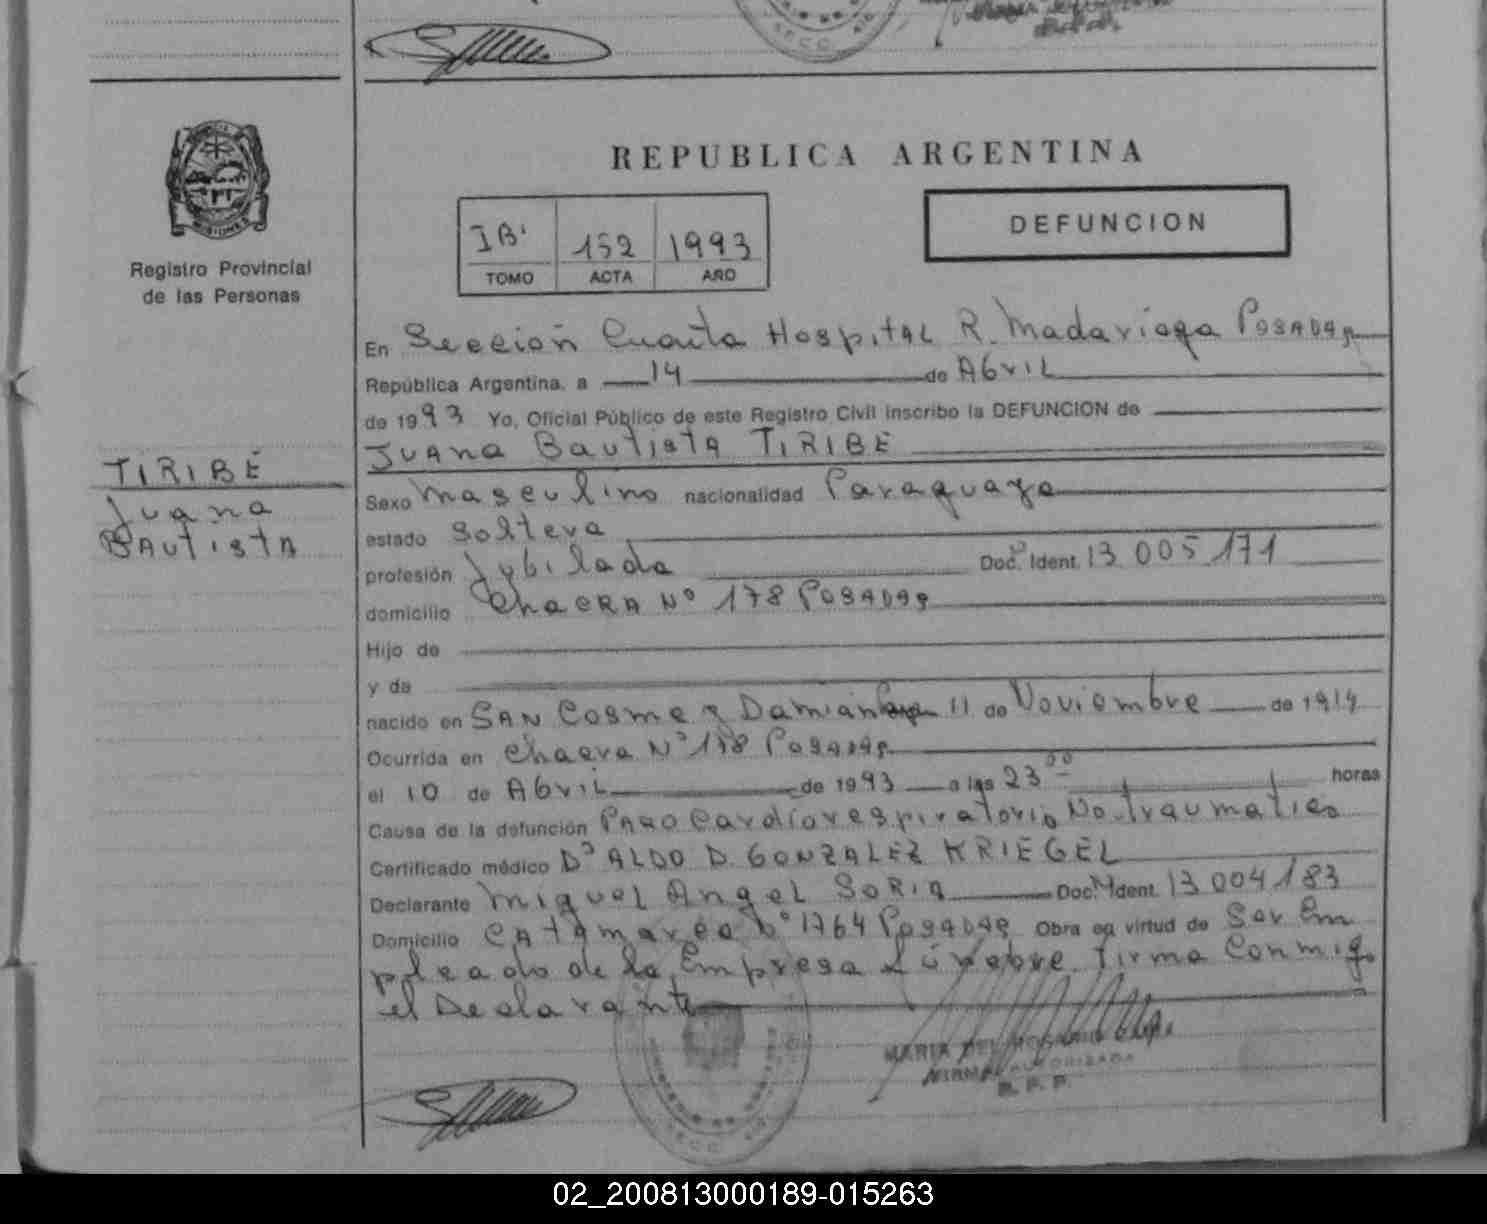 SECC.
REPUBLICA ARGENTINA
DEFUNCION
IB' 152 1993
TOMO ACTA AÑO
MISIONES
Registro Provincial
de las Personas
En Sección Cuarta Hospital R. Madariaga Posadas
República Argentina, a 14 de Abril
de 1993 Yo, Oficial Público de este Registro Civil inscribo la DEFUNCION de
Juana Bautista TIRIBE
TIRIBÉ
Juana
Bautista
Sexo Masculino nacionalidad Paraguaya
estado Soltera
profesión Jubilada Doc. Ident. 13 005 171
domicilio Chacra Nº 178 Posadas
Hijo de
y de
nacido en San Cosme y Damian 11 de Noviembre de 1914
Ocurrida en Chacra Nº 178 Posadas
el 10 de Abril de 1993 a las 23 00 horas
Causa de la defunción Paro Cardiorespiratorio No traumatico
Certificado médico Dr ALDO D. GONZALEZ KRIEGEL
Declarante Miguel Angel Soria Doc. Ident. 13 004 183
Domicilio Catamarca Nº 1764 Posadas Obra en virtud de Ser Em
pleado de la Empresa Fúnebre. Firma Conmigo
el Declarante
MARIA DEL ROSARIO
FIRMA AUTORIZADA
R. P. P.
SECC.
02_200813000189-015263